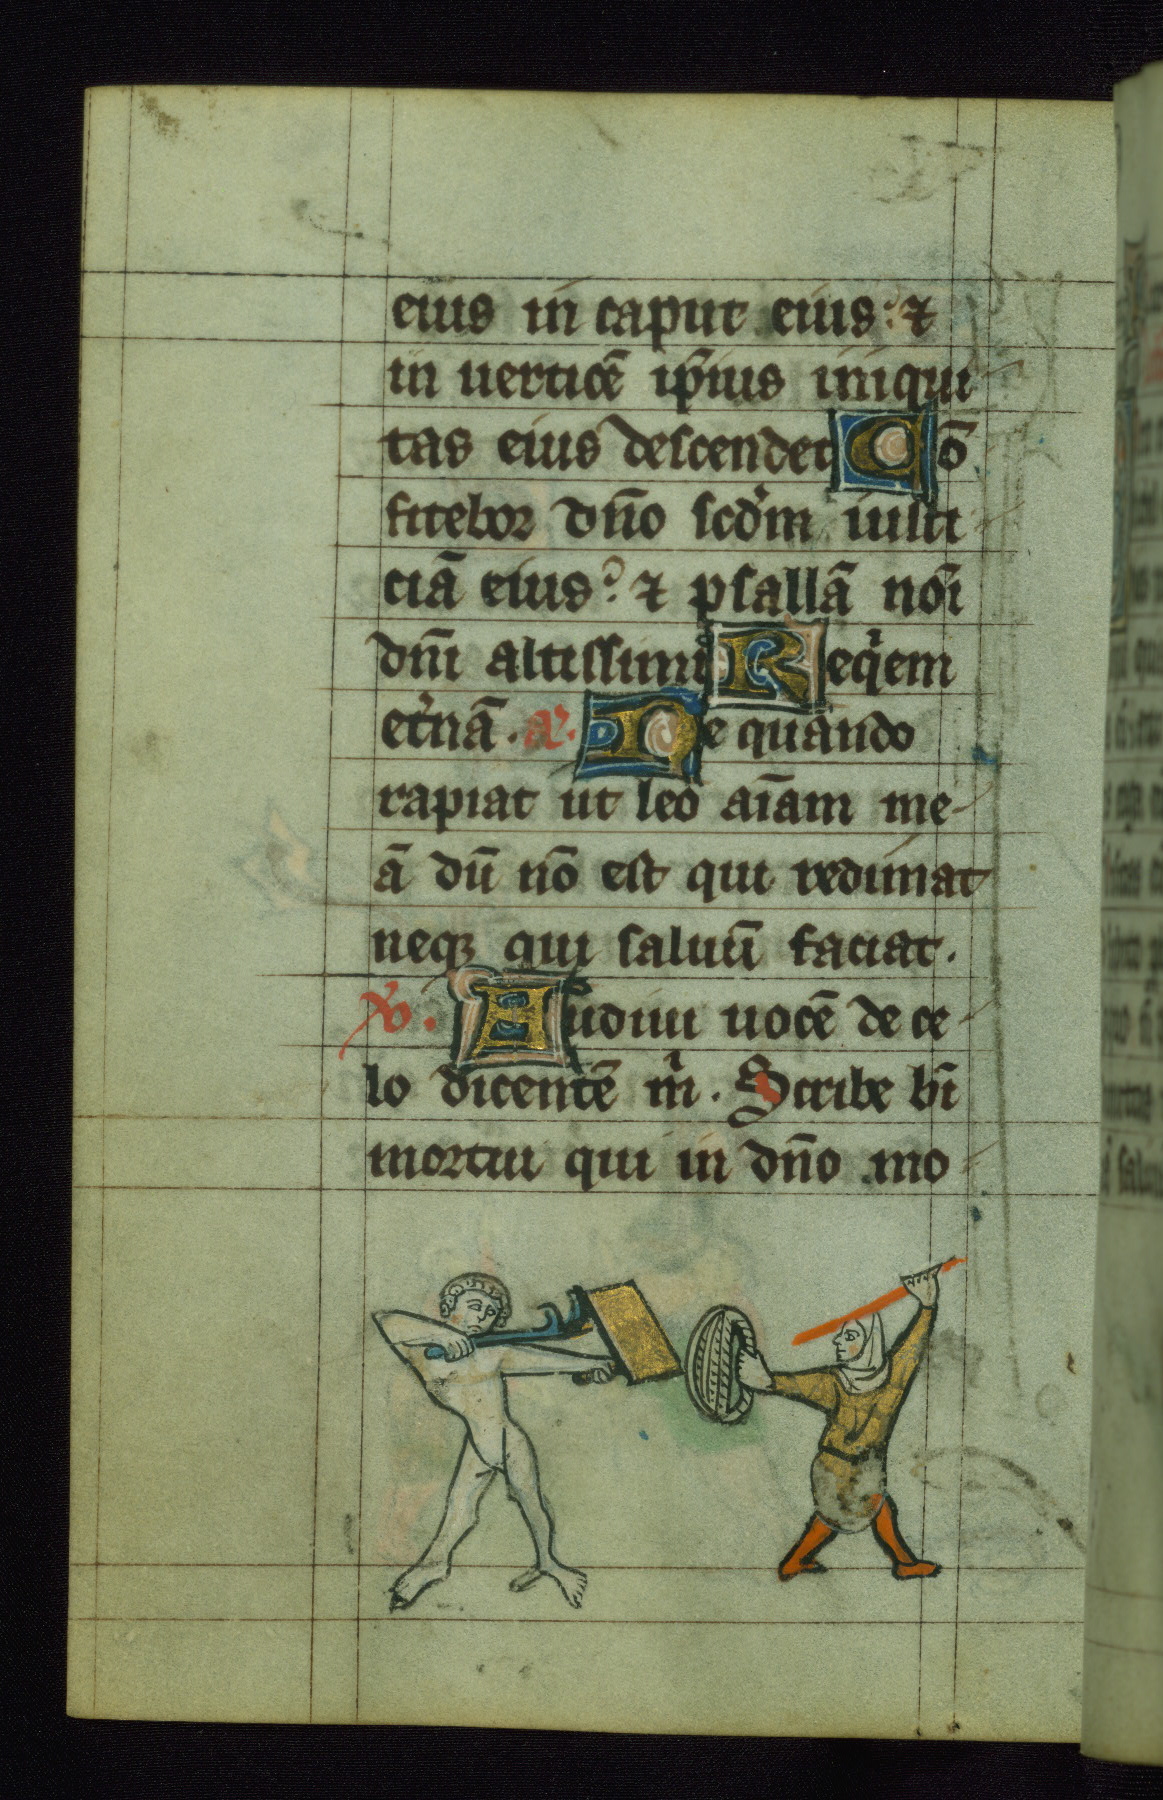 eius in caput eius: ⁊
in uerticē ip̄ius iniqui
tas eius descendet Cō
fitebor dn̄o scd̓m iusti
ciā eius: ⁊ psallā no͞i
dn̄i altissimi Req̓em
et̓nā. a͞. Ne quando
rapiat ut leo aīam me
ā dū nō est qui redimat
neqꝫ qui saluū faciat.
℣. Audiui uocē de ce
lo dicentē m̓. Scribe b͞i
mortui qui in dn̄o mo